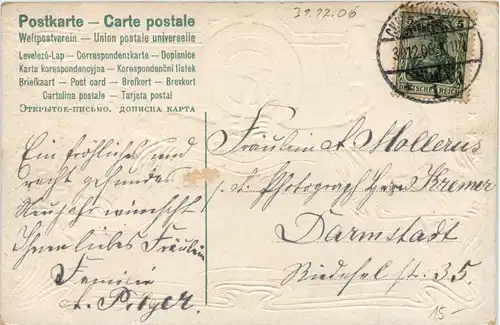 31.12.06
Postkarte — Carte postale
Weltpostverein — Union postale universelle
Levelező-Lap — Correspondenzkarte — Dopisnice
Karta korespondencyjna — Korespondenční listek
Briefkaart — Post card — Brefkort — Brevkort
Cartolina postale — Tarjeta postal
Открытое-письмо. дописна карта
5 5
31.12.06
DEUTSCHES REICH
Ein fröhliches und
recht gesundes
Neujahr wünscht
Ihnen liebes Fräulein
Familie
A. Pitzer.
Fräulein A. Mollerus
Photograph Herr Kremer
Darmstadt
Riedesel st. 35.
15-